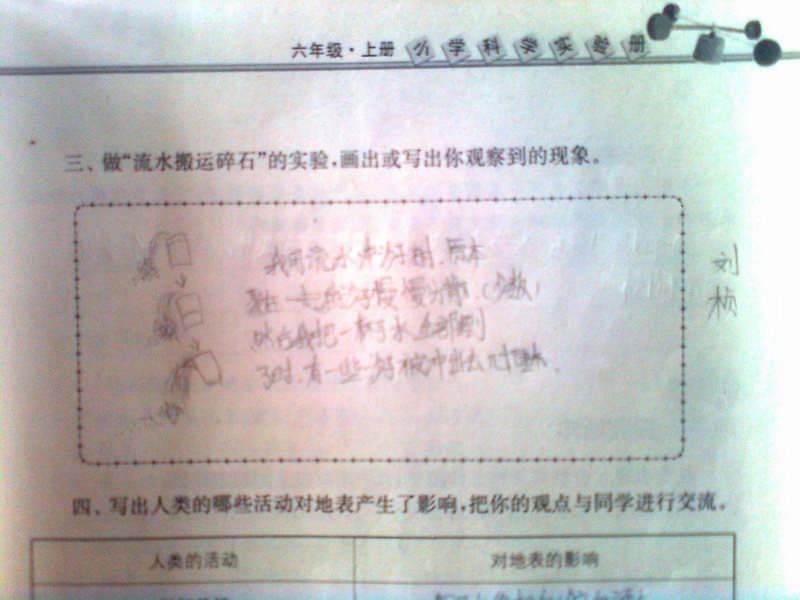 六年级·上册 小学科学实验册
三、做“流水搬运碎石”的实验,画出或写出你观察到的现象。
我用流水冲沙时,原本
在一起的沙慢慢分散
然后我把一杯水全部倒
了时,有一些沙被冲出去
刘
桢
四、写出人类的哪些活动对地表产生了影响,把你的观点与同学进行交流。
人类的活动
对地表的影响